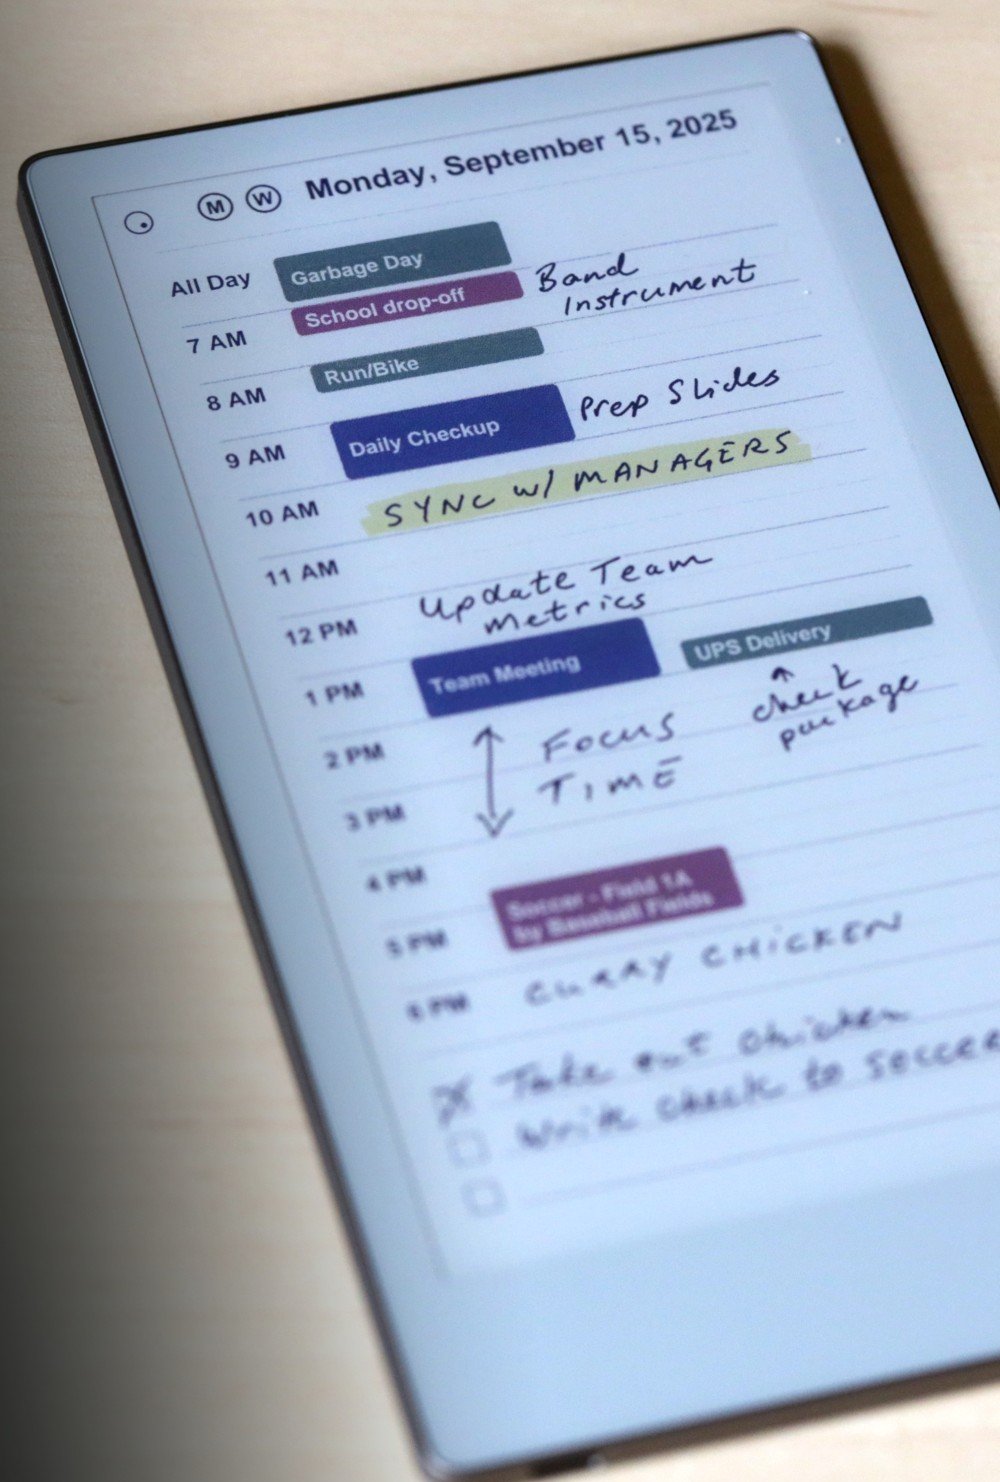 M W Monday, September 15, 2025
All Day Garbage Day
School drop-off Band
Instrument
7 AM
Run/Bike
8 AM
Daily Checkup Prep Slides
9 AM
SYNC W/ MANAGERS
10 AM
11 AM
Update Team
metrics
12 PM
Team Meeting UPS Delivery
1 PM
check
package
FOCUS
TIME
2 PM
3 PM
4 PM
Soccer - Field 1A
by Baseball Fields
5 PM
CURRY CHICKEN
6 PM
Take out chicken
Write check to soccer